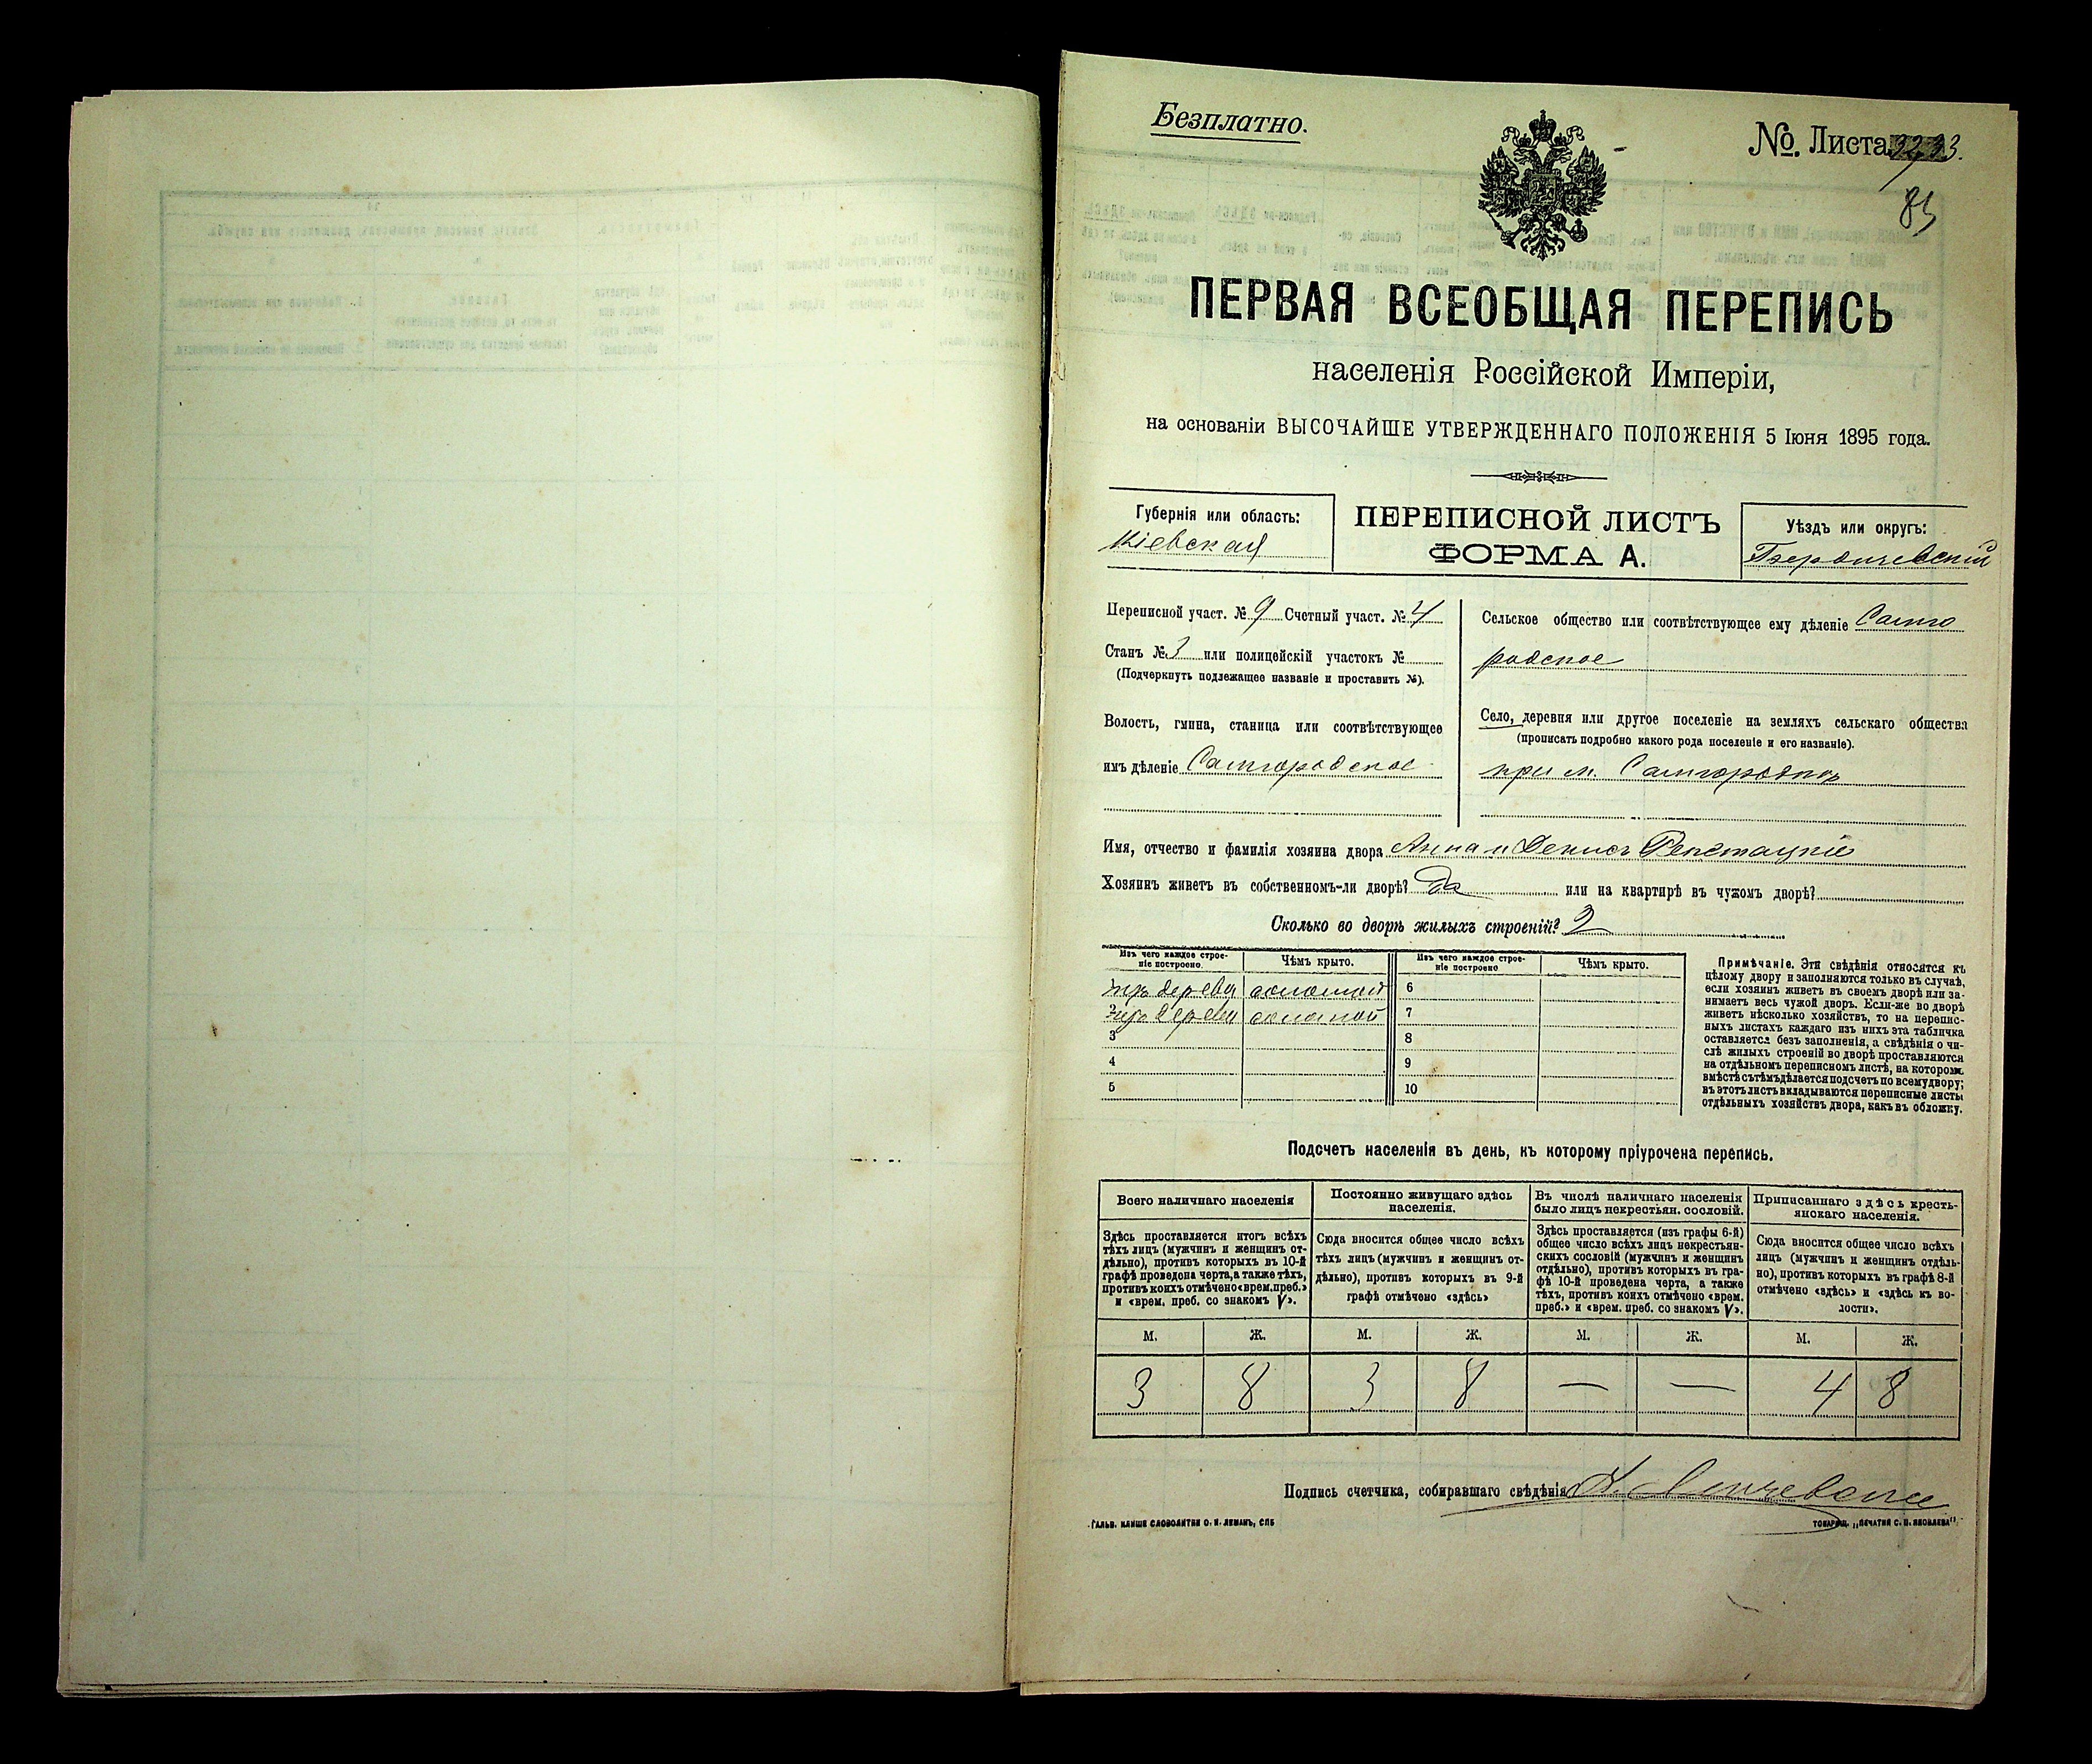 Безплатно.
№. Листа 33.
85
ПЕРВАЯ ВСЕОБЩАЯ ПЕРЕПИСЬ
населенія Россійской Имперіи,
на основаніи ВЫСОЧАЙШЕ УТВЕРЖДЕННАГО ПОЛОЖЕНІЯ 5 Іюня 1895 года.
Губернія или область:
Кіевская
ПЕРЕПИСНОЙ ЛИСТЪ
ФОРМА А.
Уѣздъ или округъ:
Бердичевскій
Переписной участ. № 9 Счетный участ. № 4
Станъ № 3 или полицейскій участокъ №
(Подчеркнуть подлежащее названіе и проставить №).
Волость, гмина, станица или соотвѣтствующее
имъ дѣленіе Самгородское
Сельское общество или соотвѣтствующее ему дѣленіе Самго
родское
Село, деревня или другое поселеніе на земляхъ сельскаго общества
(прописать подробно какого рода поселеніе и его названіе).
при м. Самгородкъ
Имя, отчество и фамилія хозяина двора Анна и Денисъ
Хозяинъ живетъ въ собственномъ-ли дворѣ? Да или на квартирѣ въ чужомъ дворѣ?
Сколько во дворѣ жилыхъ строеній? 2
Изъ чего каждое строе-
ніе построено.
Чѣмъ крыто.
Изъ чего каждое строе-
ніе построено
Чѣмъ крыто.
изъ дерева соломой 6
изъ дерева соломой 7
3 8
4 9
5 10
Примѣчаніе. Эти свѣдѣнія относятся къ
цѣлому двору и заполняются только въ случаѣ,
если хозяинъ живетъ въ своемъ дворѣ или за-
нимаетъ весь чужой дворъ. Если-же во дворѣ
живетъ нѣсколько хозяйствъ, то на перепис-
ныхъ листахъ каждаго изъ нихъ эта табличка
оставляется безъ заполненія, а свѣдѣнія о чи-
слѣ жилыхъ строеній во дворѣ проставляются
на отдѣльномъ переписномъ листѣ, на которомъ
вмѣстѣ съ тѣмъ дѣлается подсчетъ по всему двору;
въ этотъ листъ вкладываются переписные листы
отдѣльныхъ хозяйствъ двора, какъ въ обложку.
Подсчетъ населенія въ день, къ которому пріурочена перепись.
Всего наличнаго населенія
Здѣсь проставляется итогъ всѣхъ
тѣхъ лицъ (мужчинъ и женщинъ от-
дѣльно), противъ которыхъ въ 10-й
графѣ проведена черта, а также тѣхъ,
противъ коихъ отмѣчено «врем. преб.»
и «врем. преб. со знакомъ V».
Постоянно живущаго здѣсь
населенія.
Сюда вносится общее число всѣхъ
тѣхъ лицъ (мужчинъ и женщинъ от-
дѣльно), противъ которыхъ въ 9-й
графѣ отмѣчено «здѣсь»
Въ числѣ наличнаго населенія
было лицъ некрестьян. сословій.
Здѣсь проставляется (изъ графы 6-й)
общее число всѣхъ лицъ некрестьян-
скихъ сословій (мужчинъ и женщинъ
отдѣльно), противъ которыхъ въ гра-
фѣ 10-й проведена черта, а также
тѣхъ, противъ коихъ отмѣчено «врем.
преб.» и «врем. преб. со знакомъ V».
Приписаннаго здѣсь кресть-
янскаго населенія.
Сюда вносится общее число всѣхъ
лицъ (мужчинъ и женщинъ отдѣль-
но), противъ которыхъ въ графѣ 8-й
отмѣчено «здѣсь» и «здѣсь къ во-
лости».
М. Ж. М. Ж. М. Ж. М. Ж.
3 8 3 8 — — 4 8
Подпись счетчика, собиравшаго свѣдѣнія
ГАЛЬВ. КЛИШЕ СЛОВОЛИТНИ О. И. ЛЕМАНЪ, СПБ
ТОВАРИЩ. „ПЕЧАТНЯ С. П. ЯКОВЛЕВА".